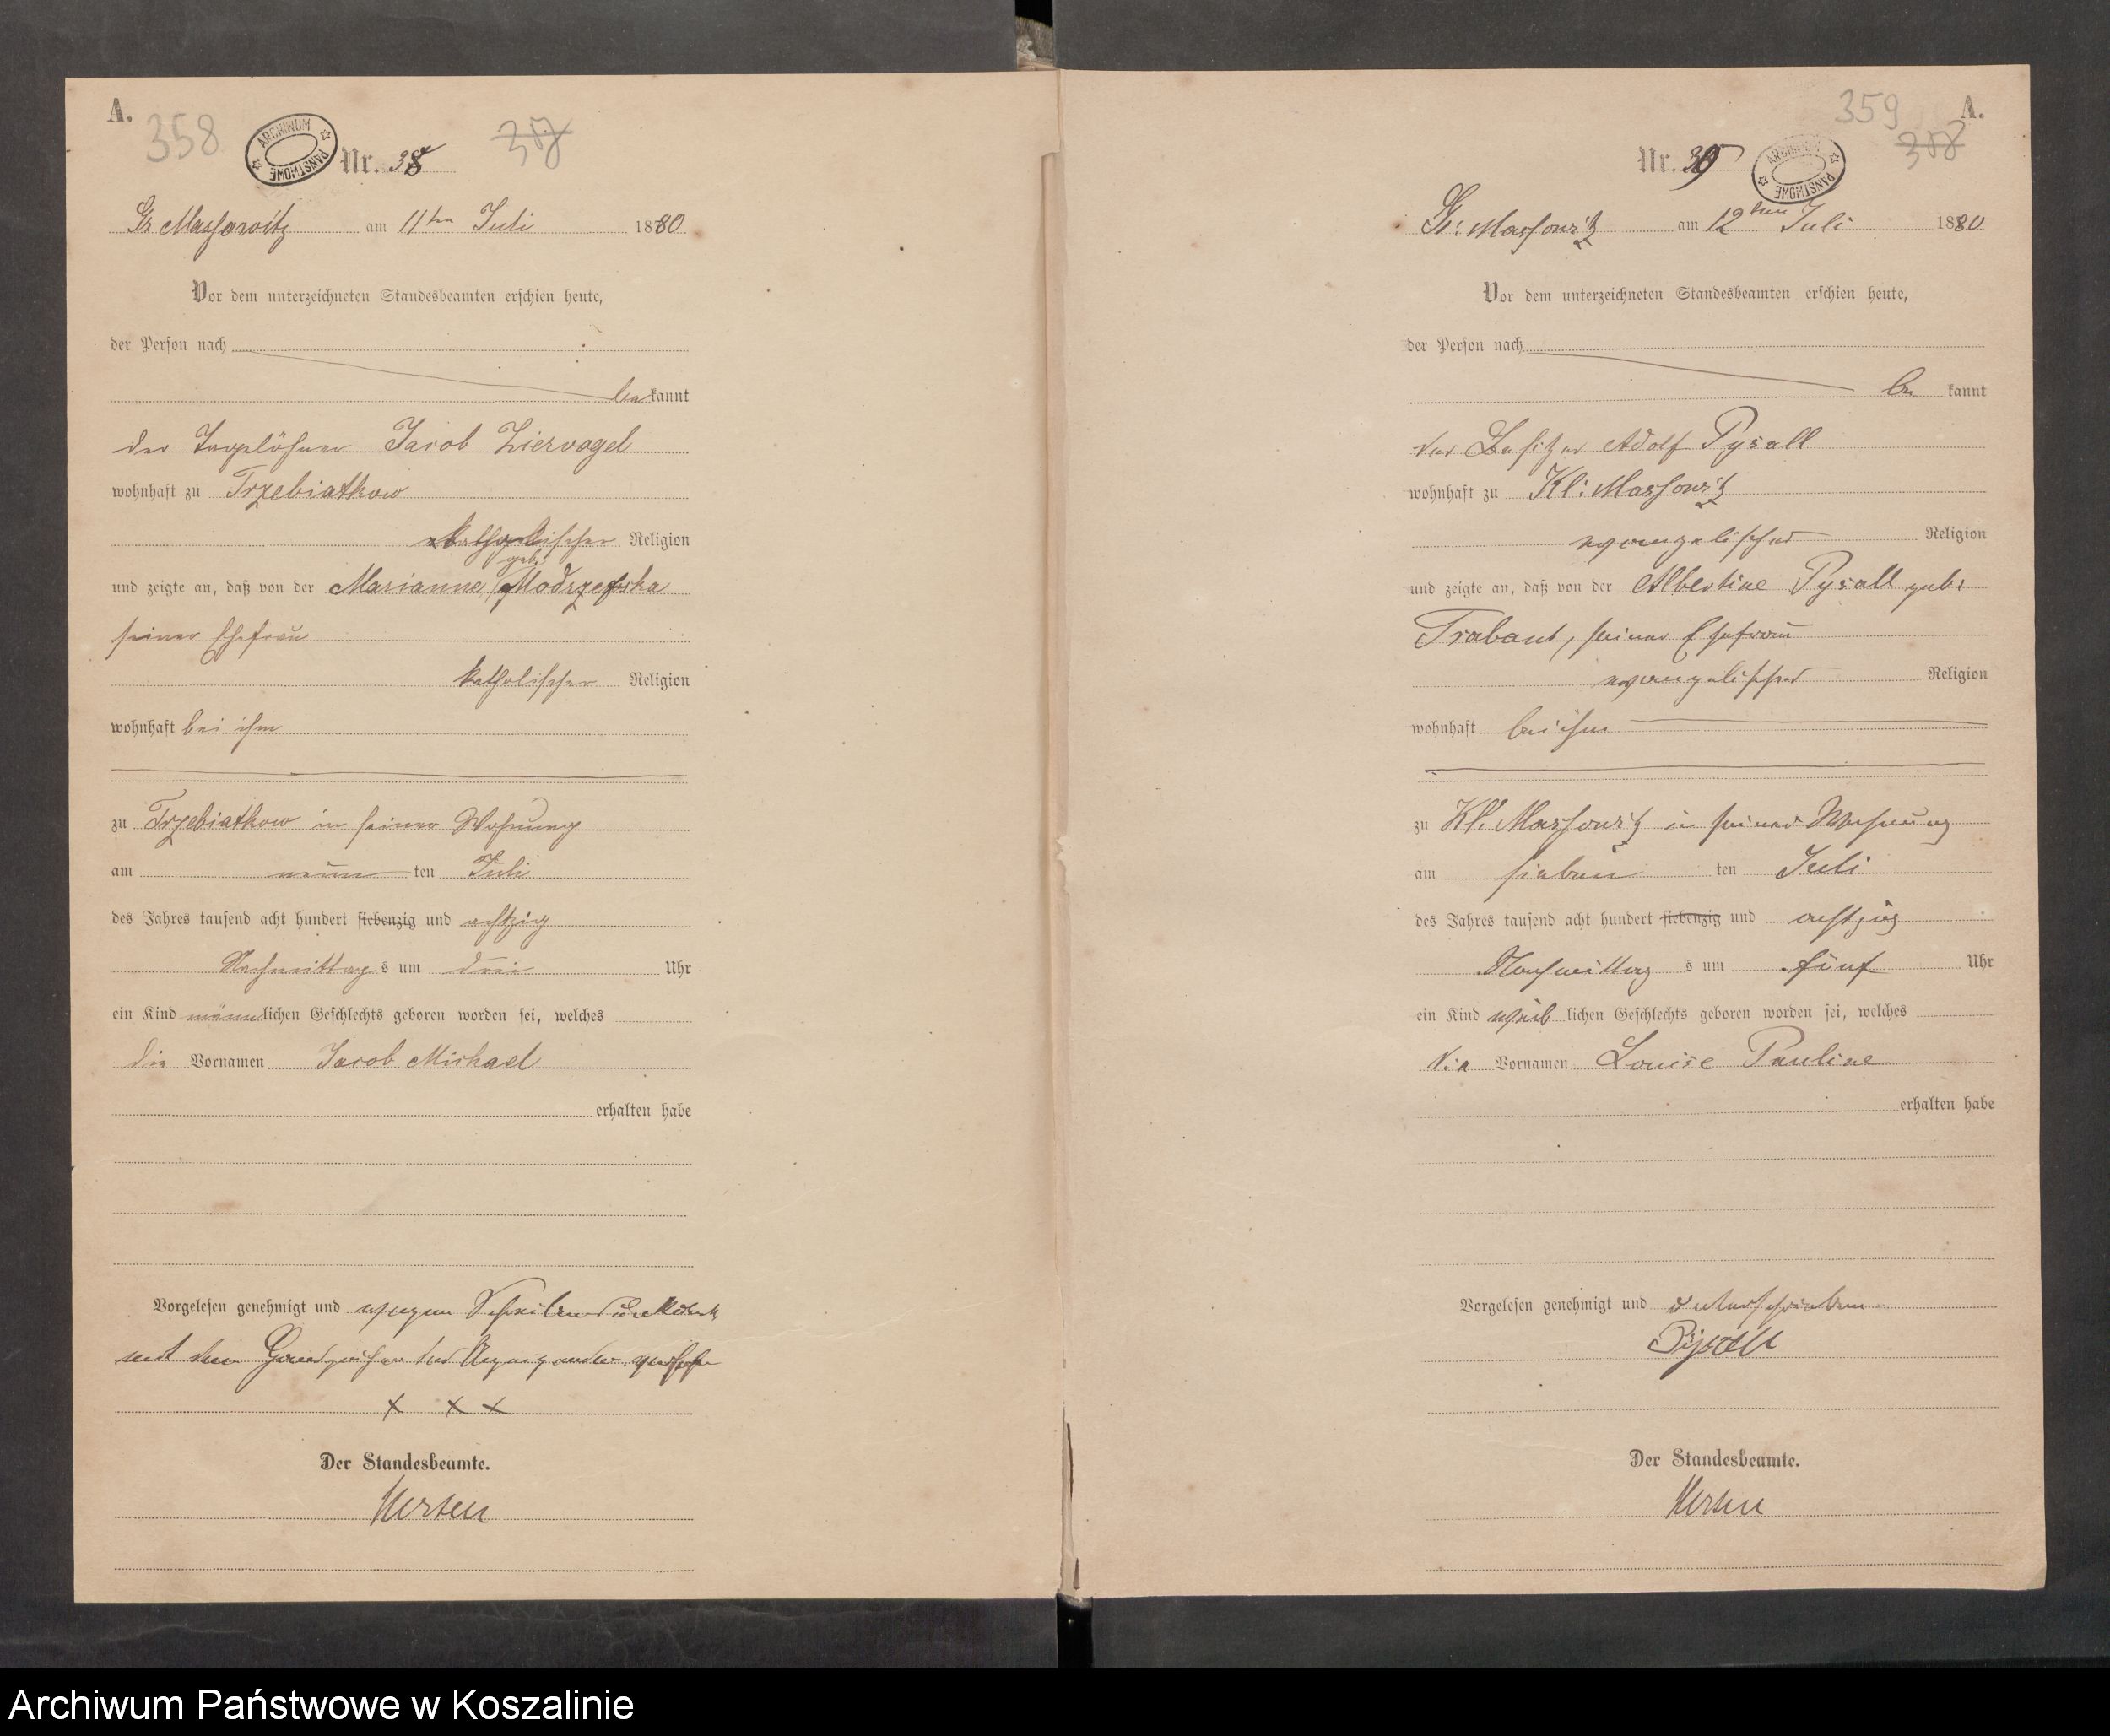 A.
358
ARCHIWUM PAŃSTWOWE
Nr. 38
Gr Massowitz am 11ten Juli 1880
Vor dem unterzeichneten Standesbeamten erschien heute,
der Person nach
bekannt
der Tagelöhner Jacob Ziervogel
wohnhaft zu Trzebiatkow
katholischer Religion
geb.
und zeigte an, daß von der Marianne Modrzefska
seiner Ehefrau
katholischer Religion
wohnhaft bei ihm
zu Trzebiatkow in seiner Wohnung
am neun ten Juli
des Jahres tausend acht hundert siebenzig und achtzig
Nachmittag s um drei Uhr
ein Kind männlichen Geschlechts geboren worden sei, welches
die Vornamen Jacob Michael
erhalten habe
Vorgelesen genehmigt und wegen Schreibensunkunde
mit dem Handzeichen des Anzeigenden versehen
x x x
Der Standesbeamte.
359
A.
Nr. 39
ARCHIWUM PAŃSTWOWE
Gr: Massowitz am 12ten Juli 1880
Vor dem unterzeichneten Standesbeamten erschien heute,
der Person nach
be kannt
der Besitzer Adolf Pysall
wohnhaft zu Kl: Massowitz
evangelischer Religion
und zeigte an, daß von der Albertine Pysall geb:
Trabant, seiner Ehefrau
evangelischer Religion
wohnhaft bei ihm
zu Kl: Massowitz in seiner Wohnung
am sieben ten Juli
des Jahres tausend acht hundert siebenzig und achtzig
Nachmittag s um fünf Uhr
ein Kind weib lichen Geschlechts geboren worden sei, welches
die Vornamen Louise Pauline
erhalten habe
Vorgelesen genehmigt und unterschrieben
Pysall
Der Standesbeamte.
Archiwum Państwowe w Koszalinie